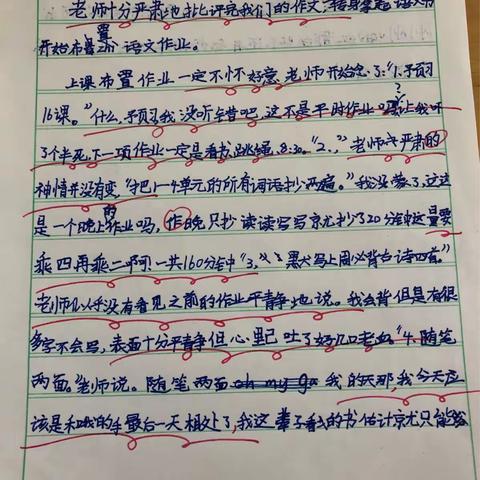 老师十分严肃地批评完我们的作文,转身拿起语文书
开始布置语文作业。
上课布置作业一定不怀好意,老师开始念了:“1.予习
16课。”什么,予习我没听错吧,这不是平时作业吗?让我听
了个半死,下一项作业一定是看书,跳绳,8:30。“2.”老师严肃的
神情并没有变“把1一4单元的所有词语抄两遍。”我没蒙了,这这
是一个晚上的作业吗,昨晚只抄读读写写就抄了20分钟这量要
乘四再乘二啊!一共160分钟“3.黑大写上周必背古诗四首。”
老师似乎没有看见之前的作业平静地说。我会背但是有很
多字不会写,表面十分平静但心里已吐了好几口老血“4.随笔
两面。”老师说。随笔两面oh my ga我的天那我今天应
该是和我的手最后一天相处了,我这辈子看的书估计就只能